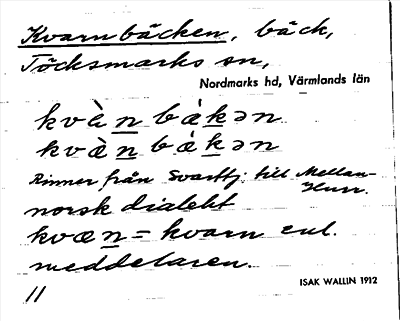 Kvarnbäcken, bäck,
Töcksmarks sn,
Nordmarks hd, Värmlands län
kvὲn bàkən
kvæ̀n bàkən
Rinner från Svarttj. till Mellan-
Hurr.
norsk dialekt
kvæn = kvarn enl.
meddelaren.
ISAK WALLIN 1912
11